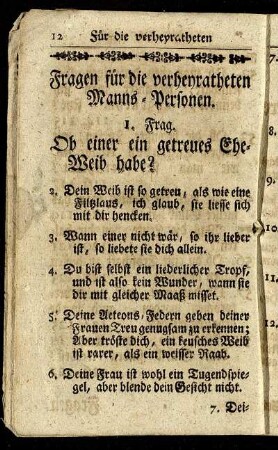 12 Für die verheyratheten
Fragen für die verheyratheten
Manns-Personen.
1. Frag.
Ob einer ein getreues Ehe-
Weib habe?
2. Dein Weib ist so getreu, als wie eine
Filtzlaus, ich glaub, sie liesse sich
mit dir hencken.
3. Wann einer nicht wär, so ihr lieber
ist, so liebete sie dich allein.
4. Du bist selbst ein liederlicher Tropf,
und ist also kein Wunder, wann sie
dir mit gleicher Maaß misset.
5. Deine Acteons-Federn geben deiner
Frauen Treu genugsam zu erkennen;
Aber tröste dich, ein keusches Weib
ist rarer, als ein weisser Raab.
6. Deine Frau ist wohl ein Tugendspie-
gel, aber blende dein Gesicht nicht.
7. Dei-